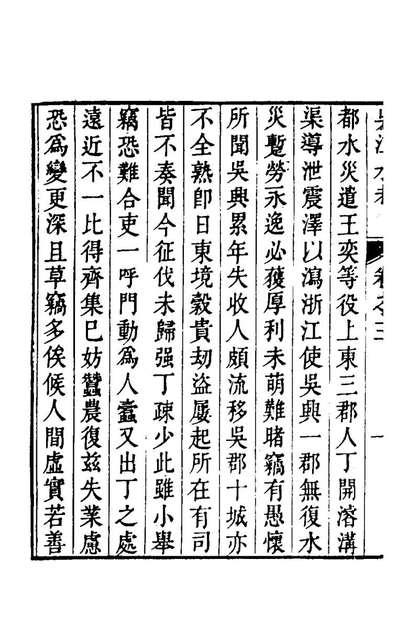 吳江水考 卷之三 一
都水災遣王奕等役上東三郡人丁開溶溝
渠導泄震澤以瀉浙江使吳興一郡無復水
災蹔勞永逸必獲厚利未萌難睹竊有愚懷
所聞吳興累年失收人頗流移吳郡十城亦
不全熟卽日東境穀貴刼盜屢起所在有司
皆不奏聞今征伐未歸强丁疎少此雖小舉
竊恐難合吏一呼門動爲人蠹又出丁之處
遠近不一比得齊集巳妨蠶農復兹失業慮
恐爲變更深且草竊多俟候人間虛實若善